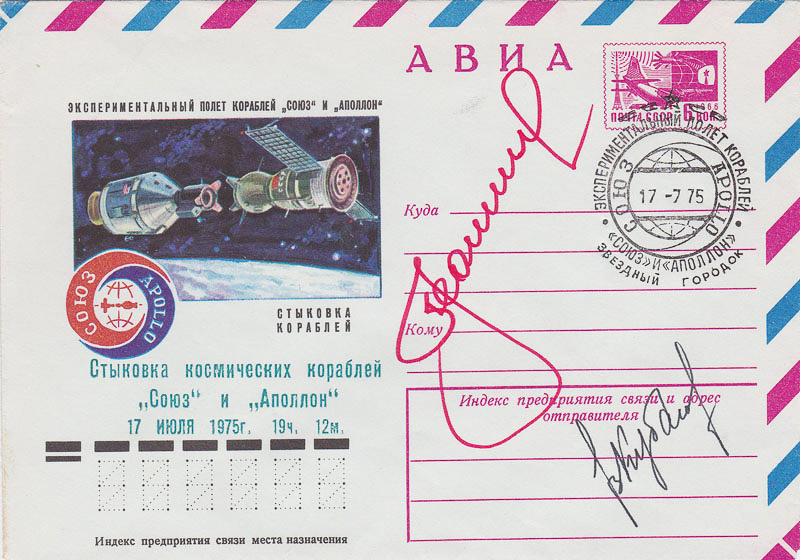 АВИА
ЭКСПЕРИМЕНТАЛЬНЫЙ ПОЛЕТ КОРАБЛЕЙ „СОЮЗ" И „АПОЛЛОН"
СОЮЗ
APOLLO
СТЫКОВКА
КОРАБЛЕЙ
Стыковка космических кораблей
„Союз" и „Аполлон"
17 ИЮЛЯ 1975г. 19ч. 12м.
Индекс предприятия связи места назначения
ПОЧТА СССР
ЭКСПЕРИМЕНТАЛЬНЫЙ ПОЛЕТ КОРАБЛЕЙ
СОЮЗ
APOLLO
17 -7 75
• «СОЮЗ» И «АПОЛЛОН» •
ЗВЕЗДНЫЙ ГОРОДОК
Куда
Кому
Индекс предприятия связи и адрес
отправителя
ВКубасов